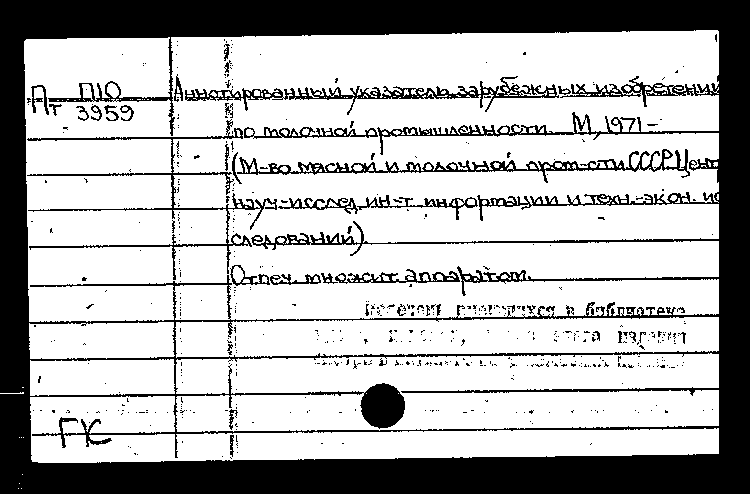 Пт П10
3959
Аннотированный указатель зарубежных изобретений
по молочной промышленности. М, 1971-
(М-во мясной и молочной пром-сти СССР. Цент
науч.-исслед. ин-т информации и техн.-экон. ис
следований).
Отпеч. множит. аппаратом.
имеющихся в библиотеке
издания
ГК